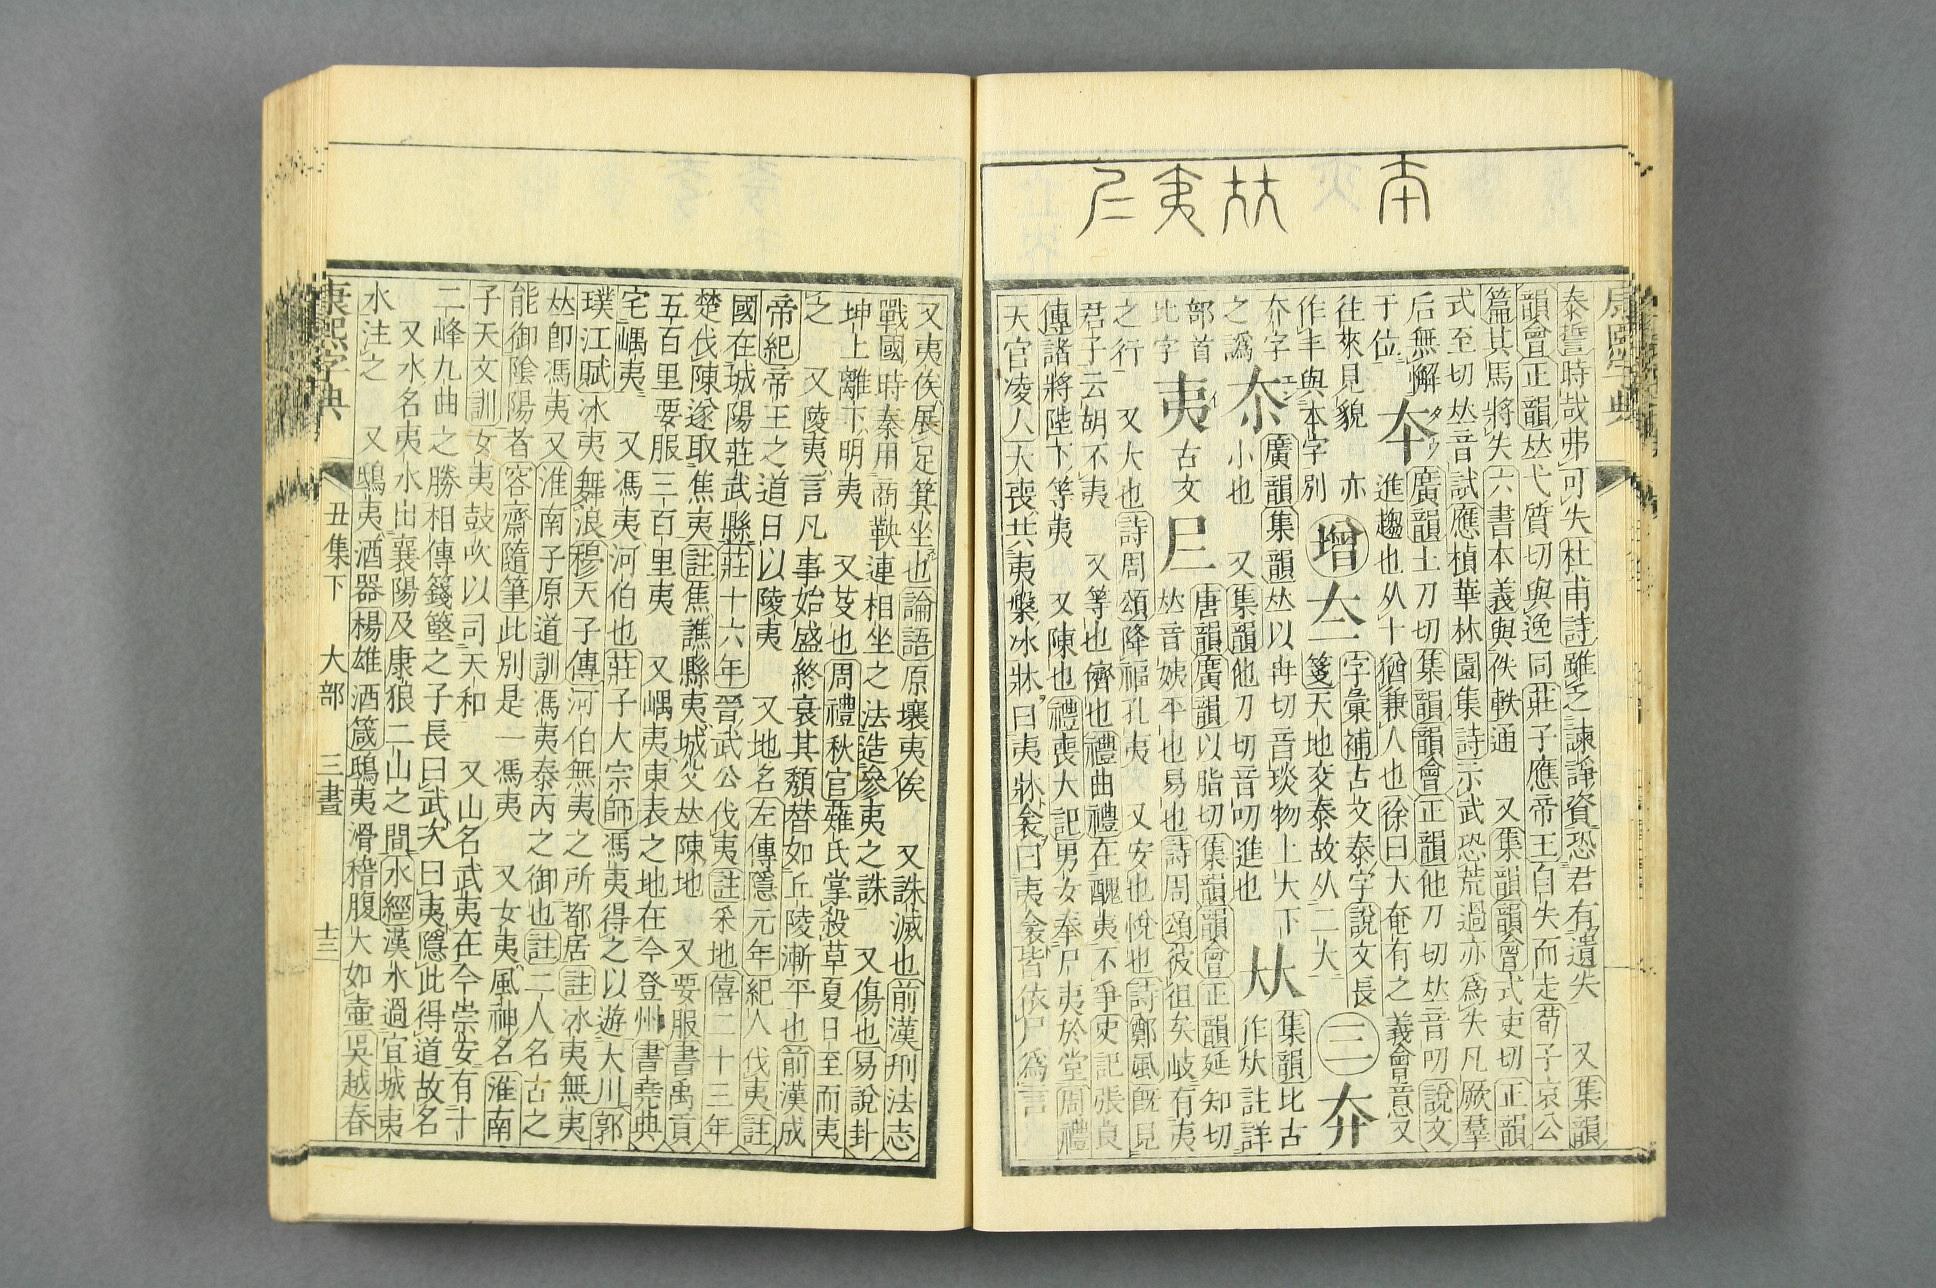 夲
㚘
夷
𡰥
康熙字典
泰誓時哉弗可失杜甫詩雖乏諫諍資恐君有遺失 又集韻
韻會正韻𠀤弋質切與逸同莊子應帝王自失而走荀子哀公
篇其馬將失 六書本義與佚軼通 又集韻韻會式吏切正韻
式至切𠀤音試應楨華林園集詩示武恐荒過亦爲失凡厥羣
后無懈
于位
夲 タウ
廣韻土刀切集韻韻會正韻他刀切𠀤音叨說文
進趨也从十猶兼人也徐曰大奄有之義會意又
往來見貌 亦
作丰與本字別
增
字彙補古文泰字說文長
箋天地交泰故从二大
三
夰字
之譌
廣韻集韻𠀤以冉切音琰物上大下
小也 又集韻他刀切音叨進也
㚘
集韻比古
作㚘註詳
部首
比字
夷 イ
古文
𡰥
唐韻廣韻以脂切集韻韻會正韻延知切
𠀤音姨平也易也詩周頌彼徂矣岐有夷
之行 又大也詩周頌降福孔夷 又安也悅也詩鄭風旣見
君子云胡不夷 又等也儕也禮曲禮在醜夷不爭史記張良
傳諸將陛下等夷 又陳也禮喪大記男女奉尸夷於堂周禮
天官凌人大喪共夷槃冰牀曰夷牀衾曰夷衾皆依尸爲言
又夷俟展足箕坐也論語原壤夷俟 又誅滅也前漢刑法志
戰國時秦用商鞅連相坐之法造參夷之誅 又傷也易說卦
坤上離下明夷 又芟也周禮秋官薙氏掌殺草夏日至而夷
之 又陵夷言凡事始盛終衰其頹替如丘陵漸平也前漢成
帝紀帝王之道日以陵夷 又地名左傳隱元年紀人伐夷註
國在城陽莊武縣莊十六年晉武公伐夷註采地僖二十三年
楚伐陳遂取焦夷註焦譙縣夷城父𠀤陳地 又要服書禹貢
五百里要服三百里夷 又嵎夷東表之地在今登州書堯典
宅嵎夷 又馮夷河伯也莊子大宗師馮夷得之以遊大川郭
璞江賦冰夷舞浪穆天子傳河伯無夷之所都居註冰夷無夷
𠀤卽馮夷又淮南子原道訓馮夷泰丙之御也註二人名古之
能御陰陽者容齋隨筆此別是一馮夷 又女夷風神名淮南
子天文訓女夷鼓吹以司天和 又山名武夷在今崇安有十
二峰九曲之勝相傳籛鏗之子長曰武次曰夷隱此得道故名
又水名夷水出襄陽及康狼二山之間水經漢水過宜城夷
水注之 又鴟夷酒器楊雄酒箴鴟夷滑稽腹大如壷吳越春
康熙字典 丑集下 大部 三畫 十三